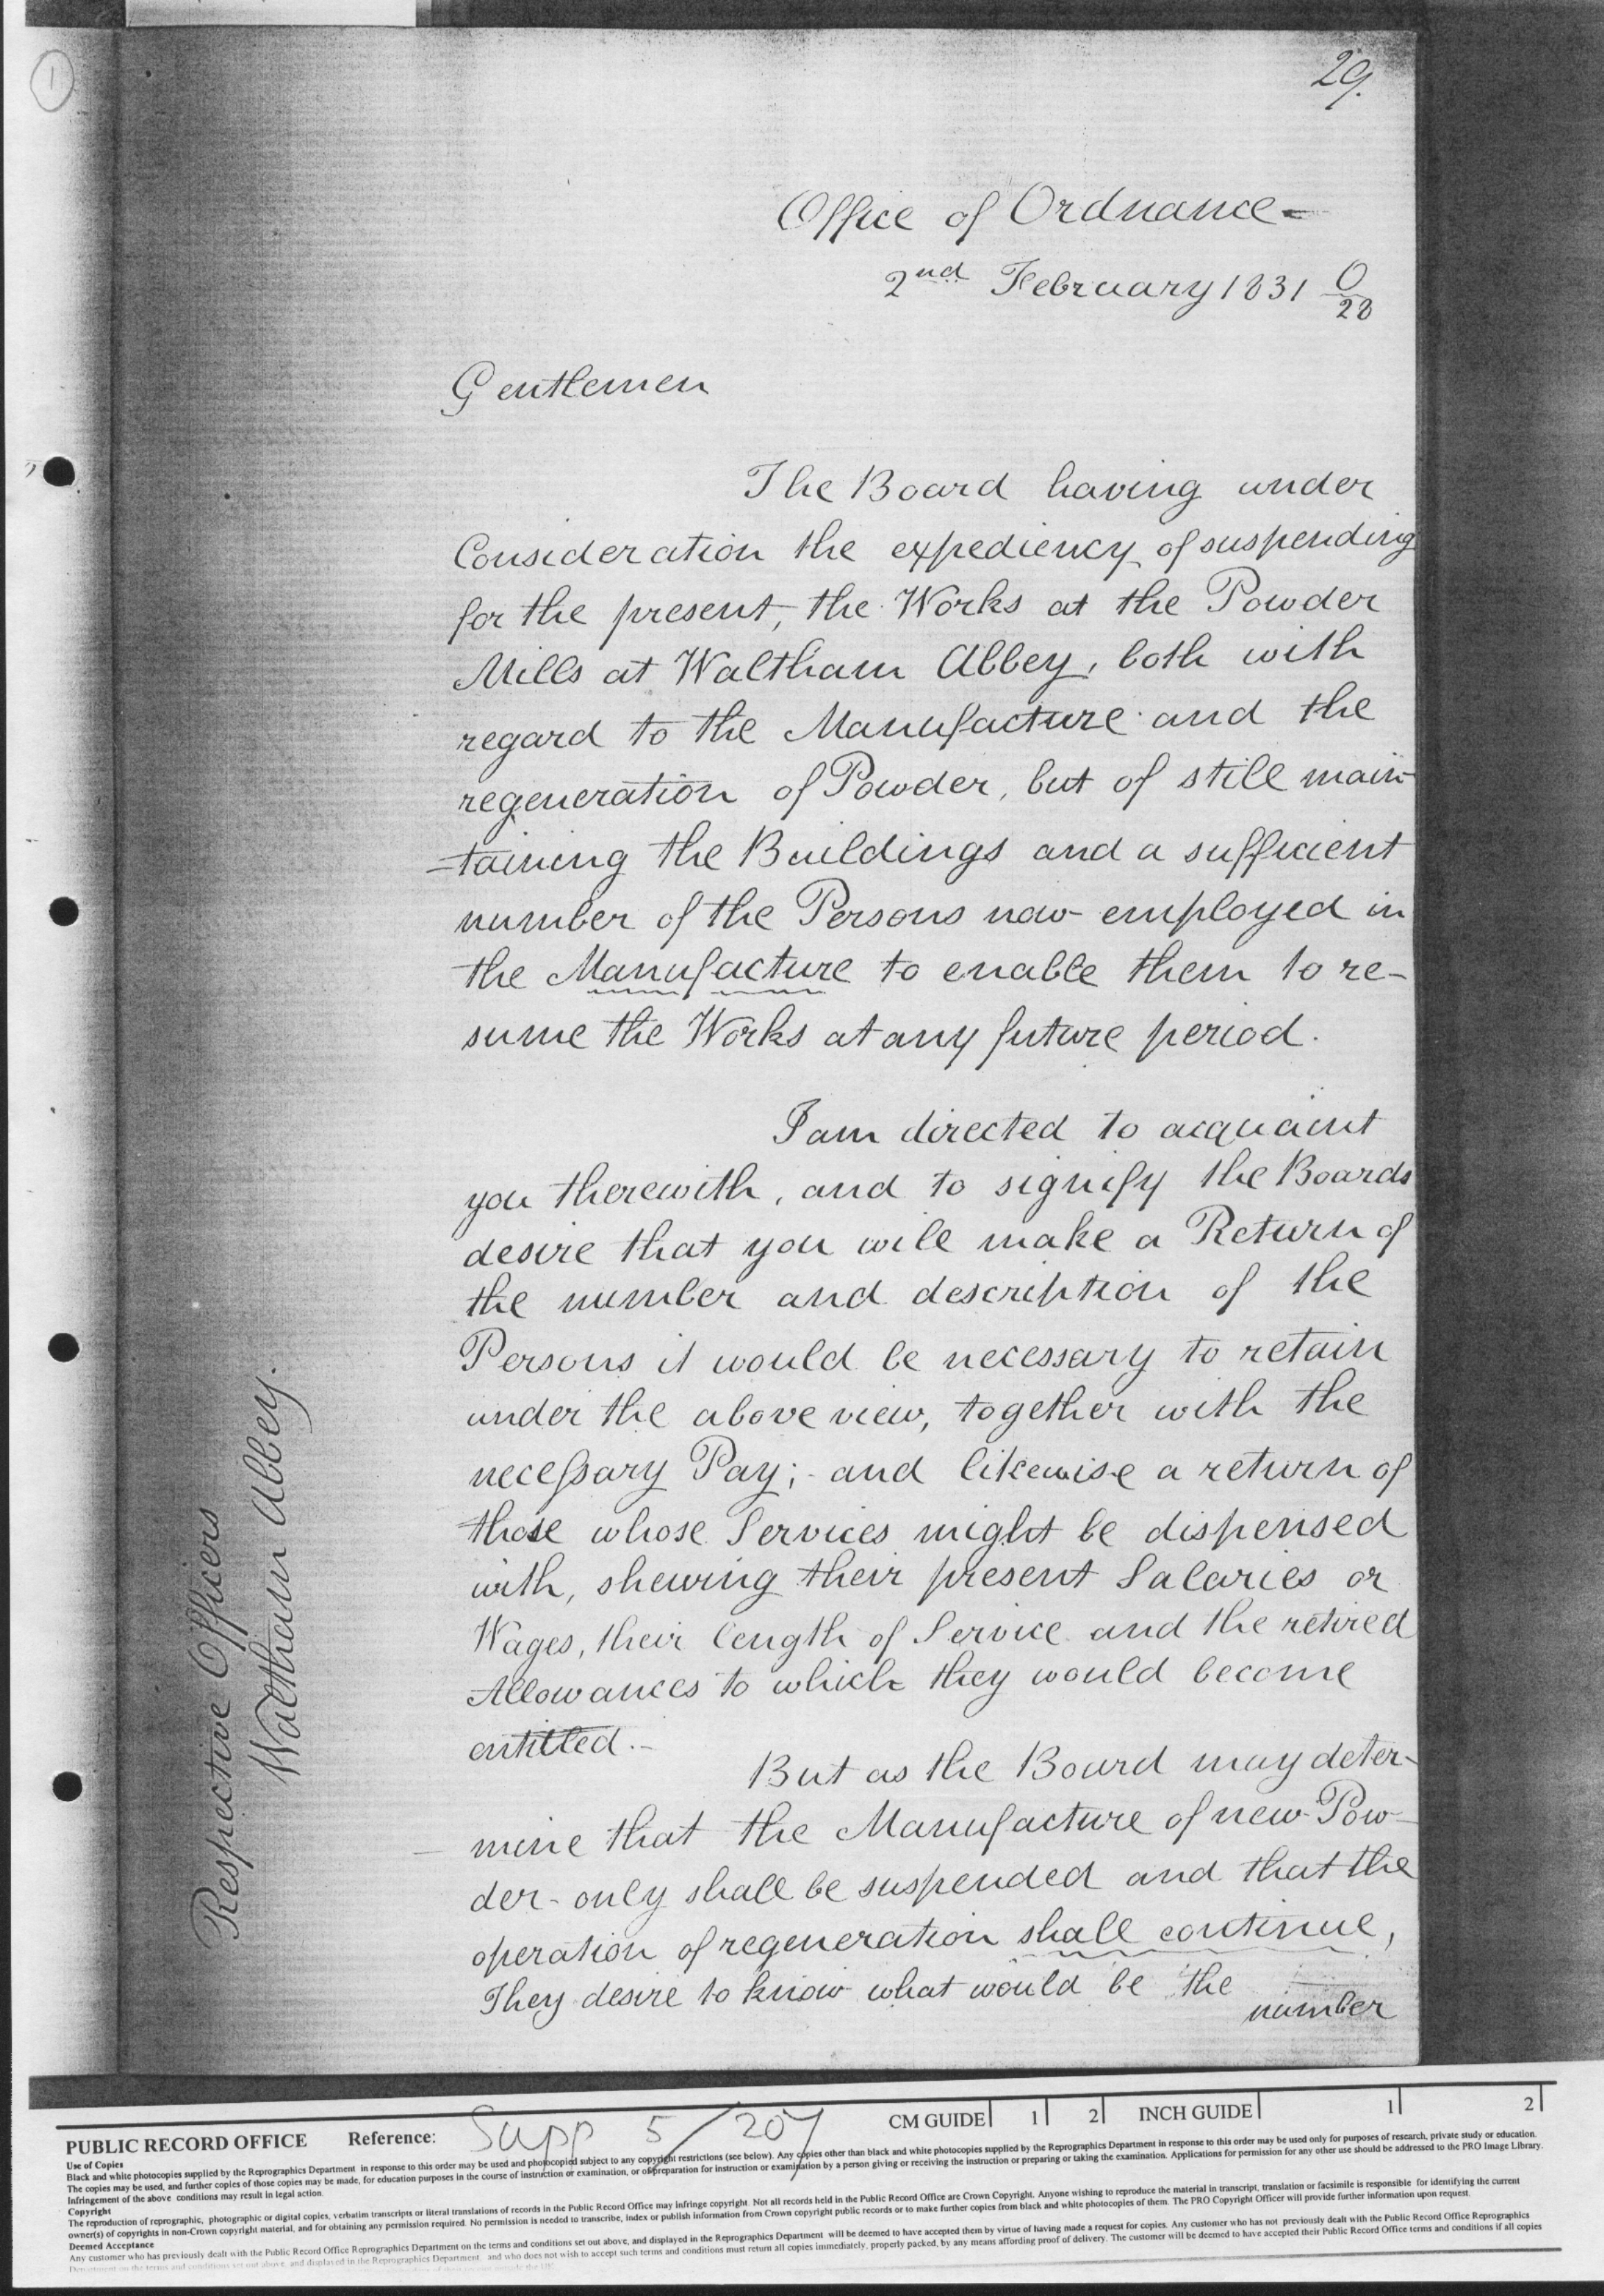 1
29.
Office of Ordnance -
2nd February 1831 O/28
Gentlemen
The Board having under
Consideration the expediency of suspending
for the present, the Works at the Powder
Mills at Waltham Abbey, both with
regard to the Manufacture and the
regeneration of Powder, but of still main-
-taining the Buildings and a sufficient
number of the Persons now employed in
the Manufacture to enable them to re-
sume the Works at any future period.
I am directed to acquaint
you therewith, and to signify the Boards
desire that you will make a Return of
the number and description of the
Persons it would be necessary to retain
under the above view, together with the
necessary Pay; - and likewise a return of
those whose Services might be dispensed
with, shewing their present Salaries or
Wages, their length of Service and the retired
Allowances to which they would become
entitled. -
But as the Board may deter-
mine that the Manufacture of new Pow-
der - only shall be suspended and that the
operation of regeneration shall continue,
They desire to know what would be the
number
Respective Officers
Waltham Abbey.
PUBLIC RECORD OFFICE Reference: Supp 5/207 CM GUIDE 1 2 INCH GUIDE 1 2
Use of Copies
Black and white photocopies supplied by the Reprographics Department in response to this order may be used and photocopied subject to any copyright restrictions (see below). Any copies other than black and white photocopies supplied by the Reprographics Department in response to this order may be used only for purposes of research, private study or education.
The copies may be used, and further copies of those copies may be made, for education purposes in the course of instruction or examination, or of preparation for instruction or examination by a person giving or receiving the instruction or preparing or taking the examination. Applications for permission for any other use should be addressed to the PRO Image Library.
Infringement of the above conditions may result in legal action.
Copyright
The reproduction of reprographic, photographic or digital copies, verbatim transcripts or literal translations of records in the Public Record Office may infringe copyright. Not all records held in the Public Record Office are Crown Copyright. Anyone wishing to reproduce the material in transcript, translation or facsimile is responsible for identifying the current
owner(s) of copyrights in non-Crown copyright material, and for obtaining any permission required. No permission is needed to transcribe, index or publish information from Crown copyright public records or to make further copies from black and white photocopies of them. The PRO Copyright Officer will provide further information upon request.
Deemed Acceptance
Any customer who has previously dealt with the Public Record Office Reprographics Department on the terms and conditions set out above, and displayed in the Reprographics Department will be deemed to have accepted them by virtue of having made a request for copies. Any customer who has not previously dealt with the Public Record Office Reprographics
Department on the terms and conditions set out above, and displayed in the Reprographics Department, and who does not wish to accept such terms and conditions must return all copies immediately, properly packed, by any means affording proof of delivery. The customer will be deemed to have accepted their Public Record Office terms and conditions if all copies